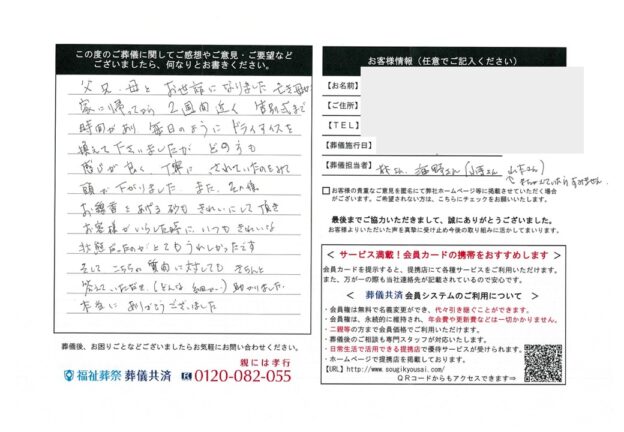 この度のご葬儀に関してご感想やご意見・ご要望など
ございましたら、何なりとお書きください。
父、兄、母と お世話になりました 亡き母が
家に帰ってから 2週間近く 告別式まで
時間があり 毎日のように ドライアイスを
換えて下さいましたが どの方も
感じが良く 丁寧に されていたのをみて
頭が下がりました。また、その後
お線香を あげる砂も きれいにして頂き
お客様がいらした時に いつもきれいな
状態だったのが とてもうれしかったです
そして こちらの質問に対しても きちんと
答えていただき、(どんな 細かい) 助かりました。
本当に ありがとうございました
葬儀後、お困りごとなどございましたらお気軽にお問い合わせください。
親には孝行
福祉葬祭 葬儀共済 0120-082-055
お客様情報(任意でご記入ください)
【お名前】
【ご住所】
【TEL】
【葬儀施行日】
【葬儀担当者】
お客様の貴重なご意見を匿名にて弊社ホームページ等に掲載させていただく場合
がございます。ご希望されない方は、こちらにチェックをお願いします。
最後までご協力いただきまして、誠にありがとうございました。
お客様よりいただいた声を真摯に受け止め今後の取り組みに活かしてまいります。
< サービス満載!会員カードの携帯をおすすめします >
会員カードを提示すると、提携店にて各種サービスをご利用いただけます。
また、万が一の際も当社連絡先が記載されているので安心です。
< 葬儀共済 会員システムのご利用について >
・会員権は無料で名義変更ができ、代々引き継ぐことができます。
・会員権は、永続的に維持され、年会費や更新費などは一切かかりません。
・二親等の方まで会員価格でご利用いただけます。
・葬儀後のご相談も専門スタッフが対応いたします。
・日常生活で活用できる提携店で優待サービスが受けられます。
・ホームページで提携店を掲載しております。
【URL】http://www.sougikyousai.com/
QRコードからもアクセスできます⇒